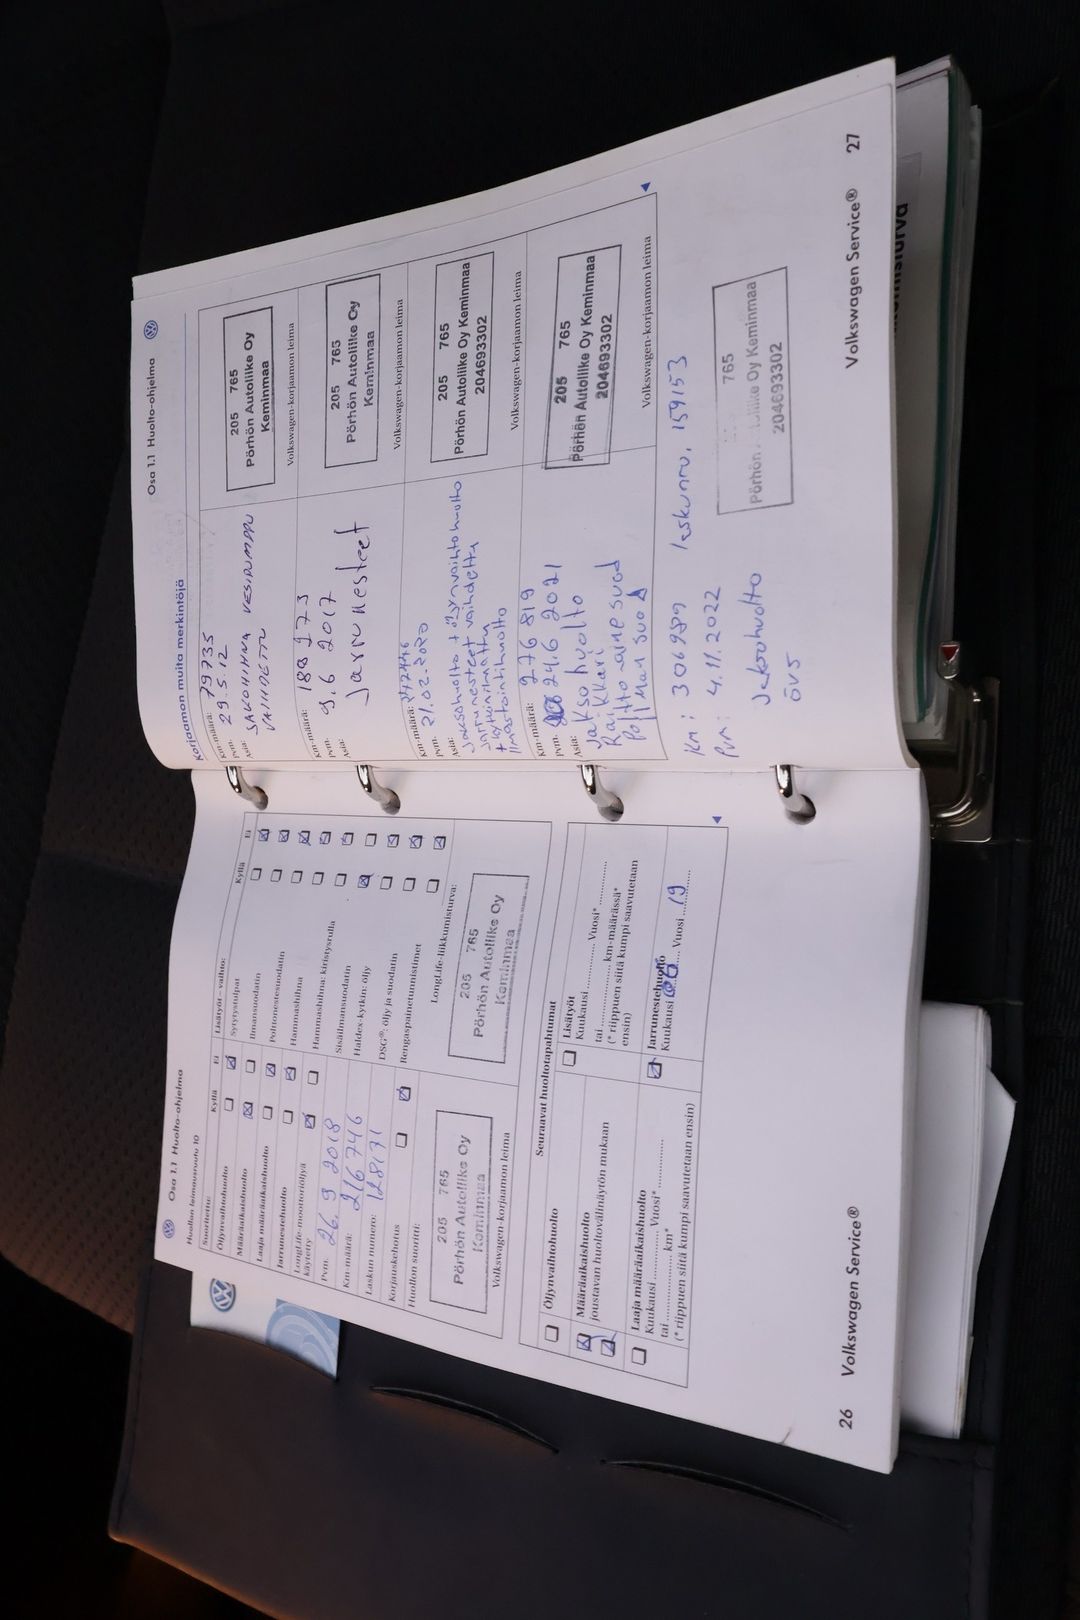 Osa 1.1 Huolto-ohjelma
Huollon leimausruutu 10
Suoritettu:
Kyllä
Ei
Öljynvaihtohuolto
Määräaikaishuolto
Laaja määräaikaishuolto
Jarrunestehuolto
LongLife-moottoriöljyä
käytetty
Pvm. 26.9 2018
Km-määrä: 216746
Laskun numero: 128171
Korjauskehotus
Huollon suoritti:
205 765
Pörhön Autoliike Oy
Keminmaa
Volkswagen-korjaamon leima
Lisätyöt – vaihto:
Kyllä
Ei
Sytytystulpat
Ilmansuodatin
Polttonestesuodatin
Hammashihna
Hammashihna: kiristysrulla
Sisäilmansuodatin
Haldex-kytkin: öljy
DSG®: öljy ja suodatin
Rengaspainetunnistimet
LongLife-liikkumisturva:
205 765
Pörhön Autoliike Oy
Keminmaa
Seuraavat huoltotapahtumat
Öljynvaihtohuolto
Määräaikaishuolto
joustavan huoltovälinäytön mukaan
Laaja määräaikaishuolto
Kuukausi ............ Vuosi* ............
tai ............ km*
(* riippuen siitä kumpi saavutetaan ensin)
Lisätyöt
Kuukausi ............ Vuosi* ............
tai ............ km-määrässä*
(* riippuen siitä kumpi saavutetaan
ensin)
Jarrunestehuolto
Kuukausi ...... Vuosi 19
26 Volkswagen Service®
Osa 1.1 Huolto-ohjelma
Korjaamon muita merkintöjä
Km-määrä: 79735
Pvm. 29.5.12
Asia: JAKOHIHNA VESIPUMPPU
VAIHDETTU
205 765
Pörhön Autoliike Oy
Keminmaa
Volkswagen-korjaamon leima
Km-määrä: 188 273
Pvm. 9.6 2017
Asia: Jarrunesteet
205 765
Pörhön Autoliike Oy
Keminmaa
Volkswagen-korjaamon leima
Km-määrä: 242446
Pvm. 21.02.2020
Asia: Jaksohuolto + öljynvaihtohuolto
Jarrunesteet vaihdettu
+ Ilmastointihuolto
205 765
Pörhön Autoliike Oy Keminmaa
204693302
Volkswagen-korjaamon leima
Km-määrä: 276 819
Pvm. 24.6 2021
Asia: Jakso huolto
Raikkari
Poltto aine suod
205 765
Pörhön Autoliike Oy Keminmaa
204693302
Volkswagen-korjaamon leima
Km: 306989 laskunnu, 159153
Pvm: 4.11.2022
Jaksohuolto
övs
765
Pörhön Autoliike Oy Keminmaa
204693302
Volkswagen Service® 27